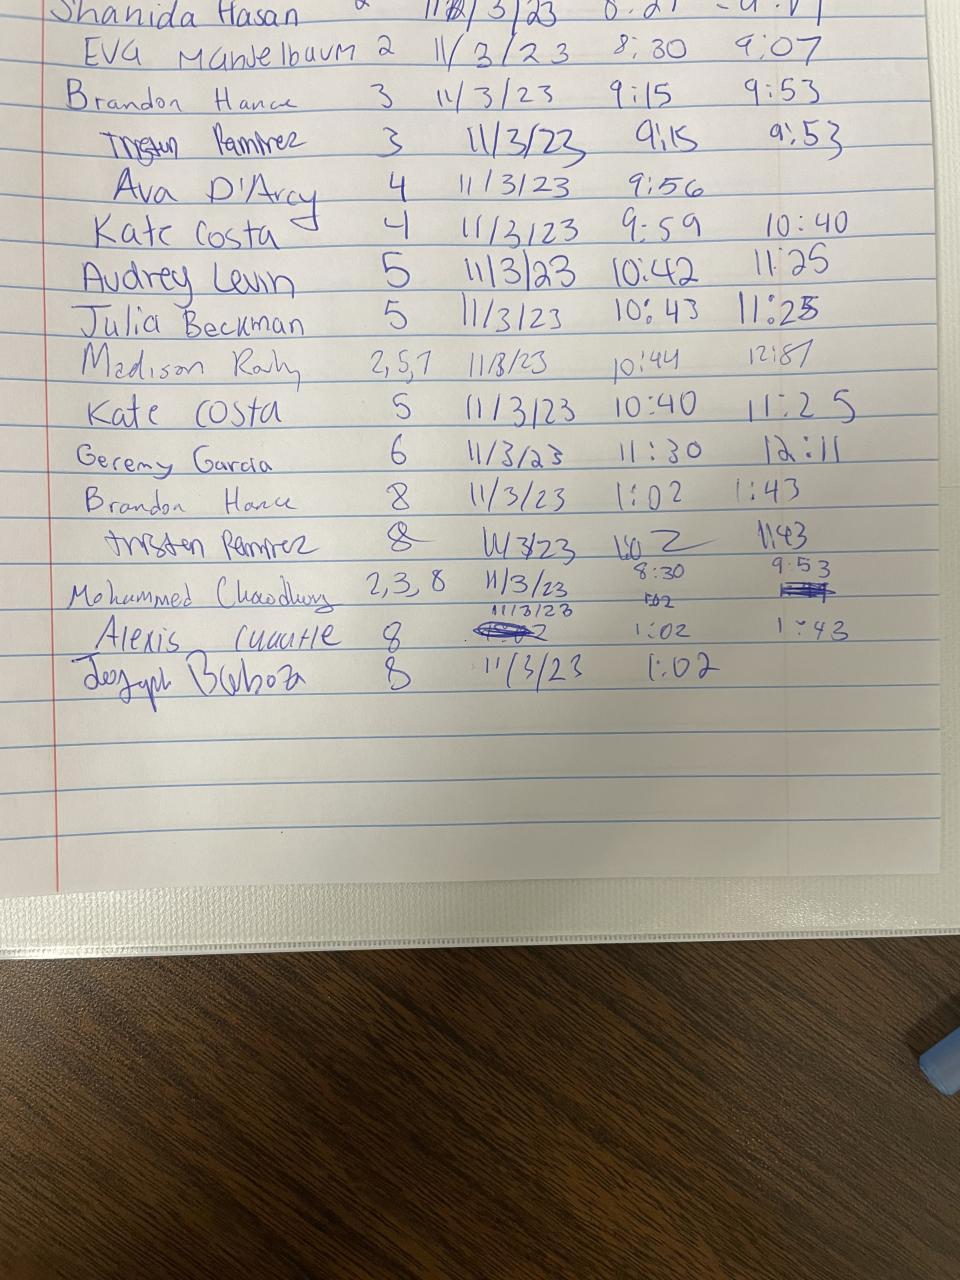 Shanida Hasan 2 11/3/23 8:27
Eva Mandelbaum 2 11/3/23 8:30 9:07
Brandon Hance 3 11/3/23 9:15 9:53
Tristen Ramirez 3 11/3/23 9:15 9:53
Ava D'Arcy 4 11/3/23 9:56
Kate Costa 4 11/3/23 9:59 10:40
Audrey Levin 5 11/3/23 10:42 11:25
Julia Beckman 5 11/3/23 10:43 11:25
Madison 2,5,7 11/3/23 10:44
Kate Costa 5 11/3/23 10:40 11:25
Geremy Garcia 6 11/3/23 11:30 12:11
Brandon Hance 8 11/3/23 1:02 1:43
Tristen Ramirez 8 11/3/23 1:02 1:43
Mohammed Chaodhury 2,3,8 11/3/23 8:30 9:53
1:02
11/3/23
Alexis Cuautle 8 1:02 1:43
Joseph Barboza 8 11/3/23 1:02